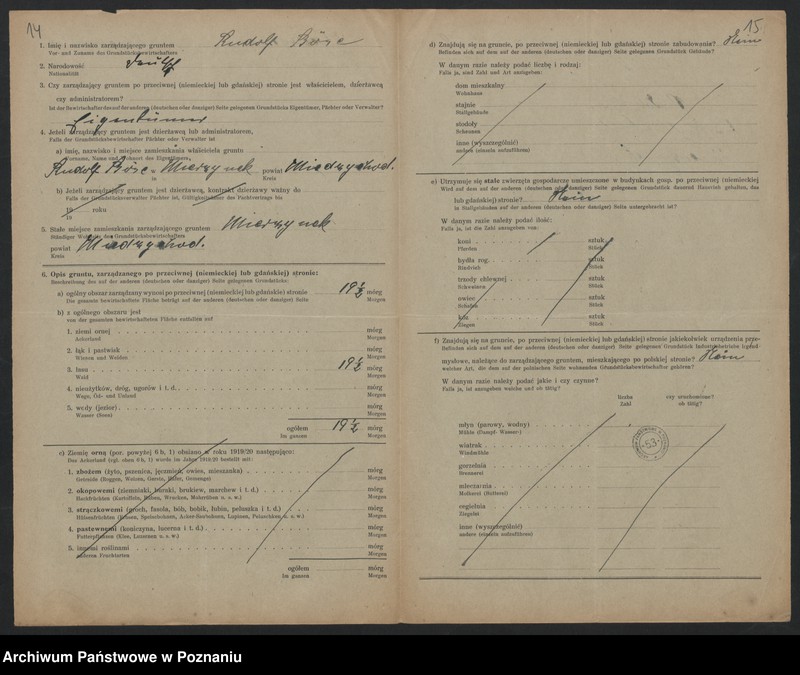 14
1. Imię i nazwisko zarządzającego gruntem Rudolf Böse
Vor- und Zuname des Grundstücksbewirtschafters
2. Narodowość
Nationalität
3. Czy zarządzający gruntem po przeciwnej (niemieckiej lub gdańskiej) stronie jest właścicielem, dzierżawcą
czy administratorem?
Ist der Bewirtschafter das auf der anderen (deutschen oder danziger) Seite gelegenen Grundstücks Eigentümer, Pächter oder Verwalter?
Eigentümer
4. Jeżeli zarządzający gruntem jest dzierżawcą lub administratorem,
Falls der Grundstücksbewirtschafter Pächter oder Verwalter ist
a) imię, nazwisko i miejsce zamieszkania właściciela gruntu
Vorname, Name und Wohnort des Eigentümers,
Rudolf Böse - Mierzynek powiat Międzychod.
in Kreis
b) Jeżeli zarządzający gruntem jest dzierżawcą, kontrakt dzierżawy ważny do
Falls der Grundstücksverwalter Pächter ist, Gültigkeitsdauer des Pachtvertrags bis
19 roku
19
5. Stałe miejsce zamieszkania zarządzającego gruntem Mierzynek
Ständiger Wohnort des Grundstücksbewirtschafters
powiat Międzychod.
Kreis
6. Opis gruntu, zarządzanego po przeciwnej (niemieckiej lub gdańskiej) stronie:
Beschreibung des auf der anderen (deutschen oder danziger) Seite gelegenen Grundstücks:
a) ogólny obszar zarządzany wynosi po przeciwnej (niemieckiej lub gdańskie) stronie 19½ mórg
Die gesamte bewirtschaftete Fläche beträgt auf der anderen (deutschen oder danziger) Seite Morgen
b) z ogólnego obszaru jest
von der gesamten bewirtschafteten Fläche entfallen auf
1. ziemi ornej mórg
Ackerland Morgen
2. łąk i pastwisk mórg
Wiesen und Weiden Morgen
3. lasu 19½ mórg
Wald Morgen
4. nieużytków, dróg, ugorów i t. d. mórg
Wege, Öd- und Unland Morgen
5. wody (jezior) mórg
Wasser (Seen) Morgen
ogółem 19½ mórg
Im ganzen Morgen
c) Ziemię orną (por. powyżej 6 b, 1) obsiano w roku 1919/20 następująco:
Das Ackerland (vgl. oben 6 b, 1) wurde im Jahre 1919/20 bestellt mit:
1. zbożem (żyto, pszenica, jęczmień, owies, mieszanka) mórg
Getreide (Roggen, Weizen, Gerste, Hafer, Gemenge) Morgen
2. okopowemi (ziemniaki, buraki, brukiew, marchew i t. d.) mórg
Hackfrüchten (Kartoffeln, Rüben, Wrucken, Mohrrüben u. s. w.) Morgen
3. strączkowemi (groch, fasola, bób, bobik, łubin, peluszka i t. d.) mórg
Hülsenfrüchten (Erbsen, Speisebohnen, Acker-Saubohnen, Lupinen, Peluschken u. s. w.) Morgen
4. pastewnemi (koniczyna, lucerna i t. d.) mórg
Futterpflanzen (Klee, Luzernen u. s. w.) Morgen
5. innemi roślinami mórg
anderen Fruchtarten Morgen
ogółem mórg
Im ganzen Morgen
15
d) Znajdują się na gruncie, po przeciwnej (niemieckiej lub gdańskiej) stronie zabudowania? Nein
Befinden sich auf dem auf der anderen (deutschen oder danziger) Seite gelegenen Grundstück Gebäude?
W danym razie należy podać liczbę i rodzaj:
Falls ja, sind Zahl und Art anzugeben:
dom mieszkalny
Wohnhaus
stajnie
Stallgebäude
stodoły
Scheunen
inne (wyszczególnić)
andere (einzeln aufzuführen)
e) Utrzymuje się stale zwierzęta gospodarcze umieszczone w budynkach gosp. po przeciwnej (niemieckiej
Wird auf dem auf der anderen (deutschen oder danziger) Seite gelegenen Grundstück dauernd Hausvieh gehalten, das
lub gdańskiej) stronie? Nein
in Stallgebäuden auf der anderen (deutschen oder danziger) Seite untergebracht ist?
W danym razie należy podać ilość:
Falls ja, ist die Zahl anzugeben von:
koni sztuk
Pferden Stück
bydła rog. sztuk
Rindvieh Stück
trzody chlewnej sztuk
Schweinen Stück
owiec sztuk
Schafen Stück
kóz sztuk
Ziegen Stück
f) Znajdują się na gruncie, po przeciwnej (niemieckiej lub gdańskiej) stronie jakiekolwiek urządzenia prze-
Befinden sich auf dem auf der anderen (deutschen oder danziger) Seite gelegenen Grundstück Industriebetriebe irgend-
mysłowe, należące do zarządzającego gruntem, mieszkającego po polskiej stronie? Nein
welcher Art, die dem auf der polnischen Seite wohnenden Grundstücksbewirtschafter gehören?
W danym razie należy podać jakie i czy czynne?
Falls ja, ist anzugeben welche und ob tätig?
liczba czy uruchomione?
Zahl ob tätig?
młyn (parowy, wodny)
Mühle (Dampf- Wasser-)
wiatrak
Windmühle
gorzelnia
Brennerei
mleczarnia
Molkerei (Sötterei)
cegielnia
Ziegelei
inne (wyszczególnić)
andere (einzeln aufzuführen)
53
Archiwum Państwowe w Poznaniu